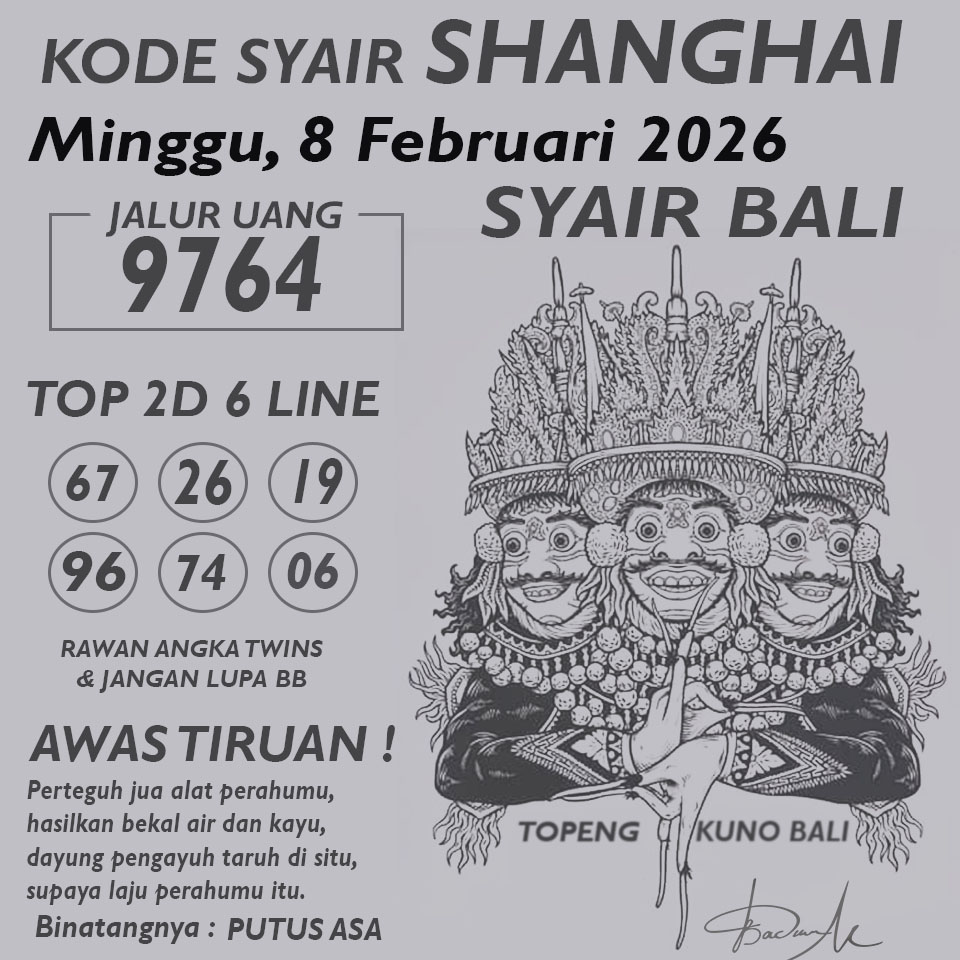 KODE SYAIR SHANGHAI
Minggu, 8 Februari 2026
SYAIR BALI
JALUR UANG
9764
TOP 2D 6 LINE
67 26 19
96 74 06
RAWAN ANGKA TWINS
& JANGAN LUPA BB
AWAS TIRUAN !
Perteguh jua alat perahumu,
hasilkan bekal air dan kayu,
dayung pengayuh taruh di situ,
supaya laju perahumu itu.
Binatangnya : PUTUS ASA
TOPENG KUNO BALI